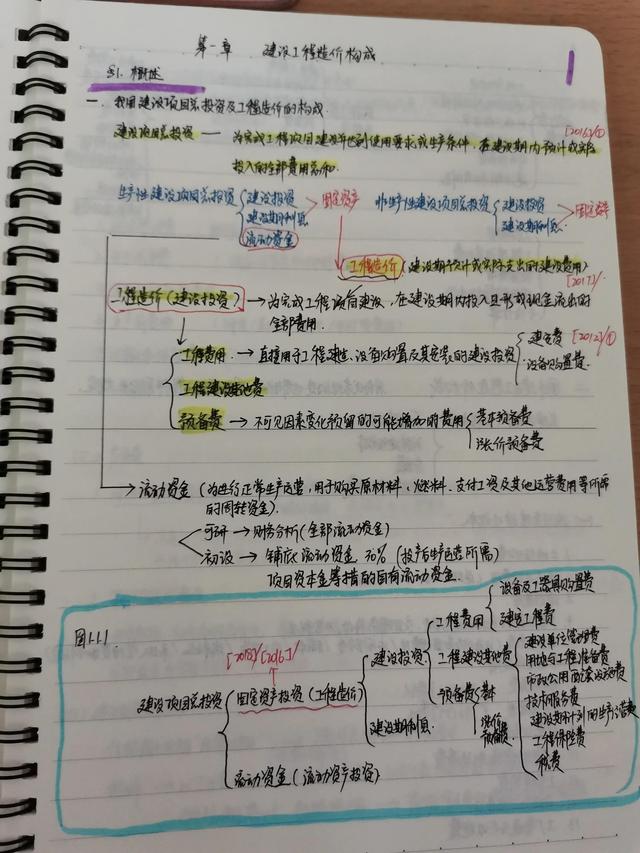 第一章 建设工程造价构成
§1. 概述
一. 我国建设项目总投资及工程造价的构成.
建设项目总投资 — 为完成工程项目建设并达到使用要求或生产条件，在建设期内预计或实际
投入的全部费用总和.
[2016]/①
生产性建设项目总投资 { 建设投资 建设期利息 → 固定资产
流动资金
非生产性建设项目总投资 { 建设投资 建设期利息 → 固定资产
工程造价 (建设期预计或实际支出的建设费用)
[2017]/
工程造价(建设投资) → 为完成工程项目建设，在建设期内投入且形成现金流出的
全部费用.
工程费用 → 直接用于工程建造、设备购置及其安装的建设投资 { 建安费 设备购置费.
[2012]/①
工程建设其他费
预备费 → 不可见因素变化预留的可能增加的费用 { 基本预备费 涨价预备费
流动资金 (为进行正常生产运营，用于购买原材料、燃料、支付工资及其他运营费用等所需
的周转资金).
可研 → 财务分析(全部流动资金)
初设 → 铺底流动资金 30% (投产后生产运营所需)
项目资本金筹措的自有流动资金.
图1.1.1
建设项目总投资 { 固定资产投资(工程造价)
[2018]/[2016]/
流动资金(流动资产投资)
建设投资
建设期利息
工程费用
工程建设其他费
预备费
基本
涨价
预备费
设备及工器具购置费
建安工程费
建设单位管理费
用地与工程准备费
市政公用配套设施费
技术服务费
建设期计划的生产经营费
工程保险费
税费